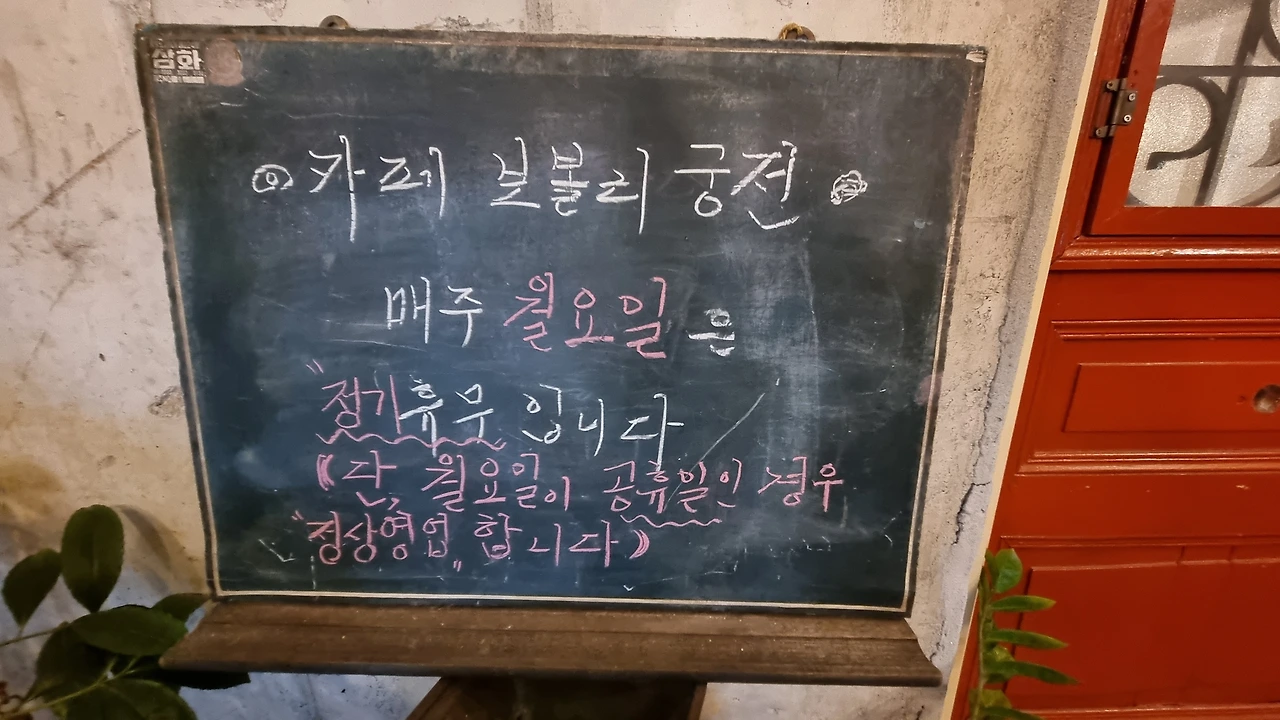 삼화
카페 보볼리 궁전
매주 월요일은
"정기휴무 입니다
(단, 월요일이 공휴일인 경우
"정상영업" 합니다)